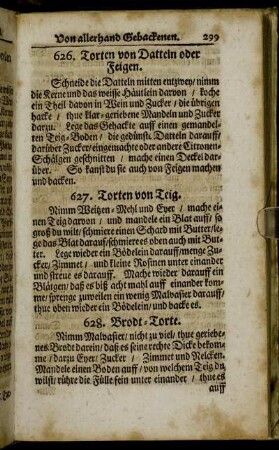 Von allerhand Gebackenen. 299
626. Torten von Datteln oder
Feigen.
Schneide die Datteln mitten entzwey/ nimm
die Kerne und das weisse Häutlein davon / koche
ein Theil davon in Wein und Zucker / die übrigen
hacke / thue klar-geriebene Mandeln und Zucker
darzu. Lege das Gehackte auff einen gemandel-
ten Teig-Boden / die gedünst. Datteln darauff/
darüber Zucker/eingemachte oder andere Citronen-
Schälgen geschnitten / mache einen Deckel dar-
über. So kanst du sie auch von Feigen machen
und backen.
627. Torten von Teig.
Nimm Weitzen-Mehl und Eyer / mache ei-
nen Teig davon / und mandele ein Blat auff/ so
groß du wilt/ schmiere einen Schard mit Butter/ le-
ge das Blat darauf/ schmiere es oben auch mit But-
ter. Lege wieder ein Bödelein darauff/menge Zu-
cker/Zimmet / und kleine Rosinen unter einander
und streue es darauff. Mache wieder darauff ein
Blätgen/ daß es biß acht mahl auff einander kom-
me/ sprenge zuweilen ein wenig Malvasier darauff/
thue oben wieder ein Bödelein/ und back es.
628. Brodt-Torte.
Nimm Malvasier/ nicht zu viel/ thue geriebe-
nes Brodt darein/ daß es seine rechte Dicke bekom-
me / darzu Eyer/ Zucker / Zimmet und Nelcken.
Mandele einen Boden auff / von welchem Teig du
wilst/ rühre die Fülle fein unter einander / thue es
auff